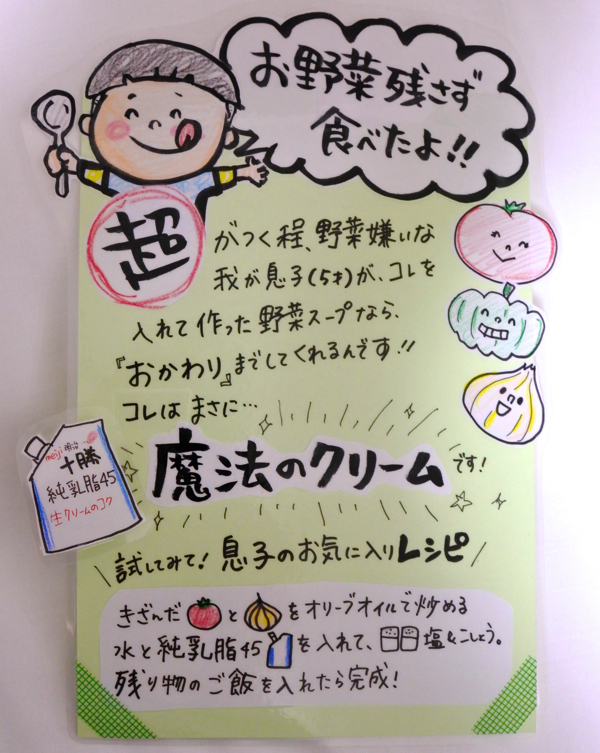 お野菜残さず
食べたよ!!
超がつく程、野菜嫌いな
我が息子(5才)が、コレを
入れて作った野菜スープなら、
『おかわり』までしてくれるんです!!
コレはまさに…
魔法のクリームです!
meiji 明治
十勝
純乳脂45
生クリームのコク
試してみて! 息子のお気に入りレシピ
きざんだ と をオリーブオイルで炒める
水と純乳脂45 を入れて、 塩&こしょう。
残り物のご飯を入れたら完成!